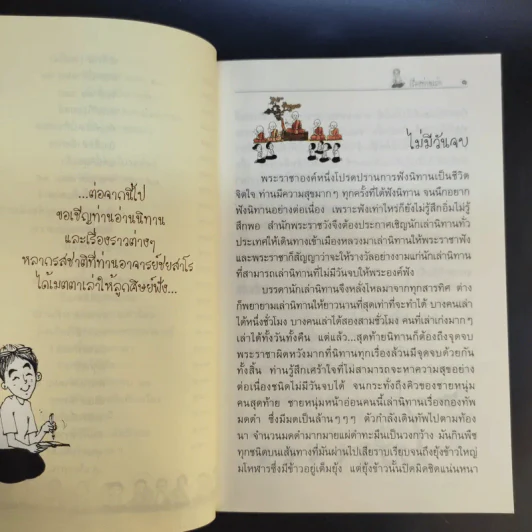 ...ต่อจากนี้ไป
ขอเชิญทานอ่านนิทาน
และเรื่องราวต่างๆ
หลากรสชาติที่ท่านอาจารย์ชยสาโร
ได้เมตตาเล่าให้ลูกศิษย์ฟัง...
ไม่มีวันจบ
พระราชาองค์หนึ่งโปรดปรานการฟังนิทานเป็นชีวิต
จิตใจ ท่านมีความสุขมากๆ ทุกครั้งที่ได้ฟังนิทาน จนนึกอยาก
ฟังนิทานอย่างต่อเนื่อง เพราะฟังเท่าไหร่ก็ยังไม่รู้สึกอิ่มไม่รู้
สึกพอ สำนักพระราชวังจึงต้องประกาศเชิญนักเล่านิทานทั่ว
ประเทศให้เดินทางเข้าเมืองหลวงมาเล่านิทานให้พระราชาฟัง
และพระราชาก็สัญญาว่าจะให้รางวัลอย่างงามแก่นักเล่านิทาน
ที่สามารถเล่านิทานที่ไม่มีวันจบให้พระองค์ฟัง
บรรดานักเล่านิทานจึงหลั่งไหลมาจากทุกสารทิศ ต่าง
ก็พยายามเล่านิทานให้ยาวนานที่สุดเท่าที่จะทำได้ บางคนเล่า
ได้หนึ่งชั่วโมง บางคนเล่าได้สองสามชั่วโมง คนที่เล่าเก่งมากๆ
เล่าได้ทั้งวันทั้งคืน แต่แล้ว...สุดท้ายนิทานก็ต้องถึงจุดจบ
พระราชาผิดหวังมากที่นิทานทุกเรื่องล้วนมีจุดจบด้วยกัน
ทั้งสิ้น ท่านรู้สึกเศร้าใจที่ไม่สามารถจะหาความสุขอย่าง
ต่อเนื่องชนิดไม่มีวันจบได้ จนกระทั่งถึงคิวของชายหนุ่ม
คนสุดท้าย ชายหนุ่มหน้าอ่อนคนนี้เล่านิทานเรื่องกองทัพ
มดดำ ซึ่งมีมดเป็นล้านๆๆๆ ตัวกำลังเดินทัพไปตามท้อง
นา จำนวนมดดำมากมายแผ่ดำทะมึนเป็นวงกว้าง มันกินพืช
ทุกชนิดบนเส้นทางที่มันผ่านไปเสียราบเรียบจนถึงยุ้งข้าวใหญ่
มโหฬารซึ่งมีข้าวอยู่เต็มยุ้ง แต่ยุ้งข้าวนั้นปิดมิดชิดแน่นหนา